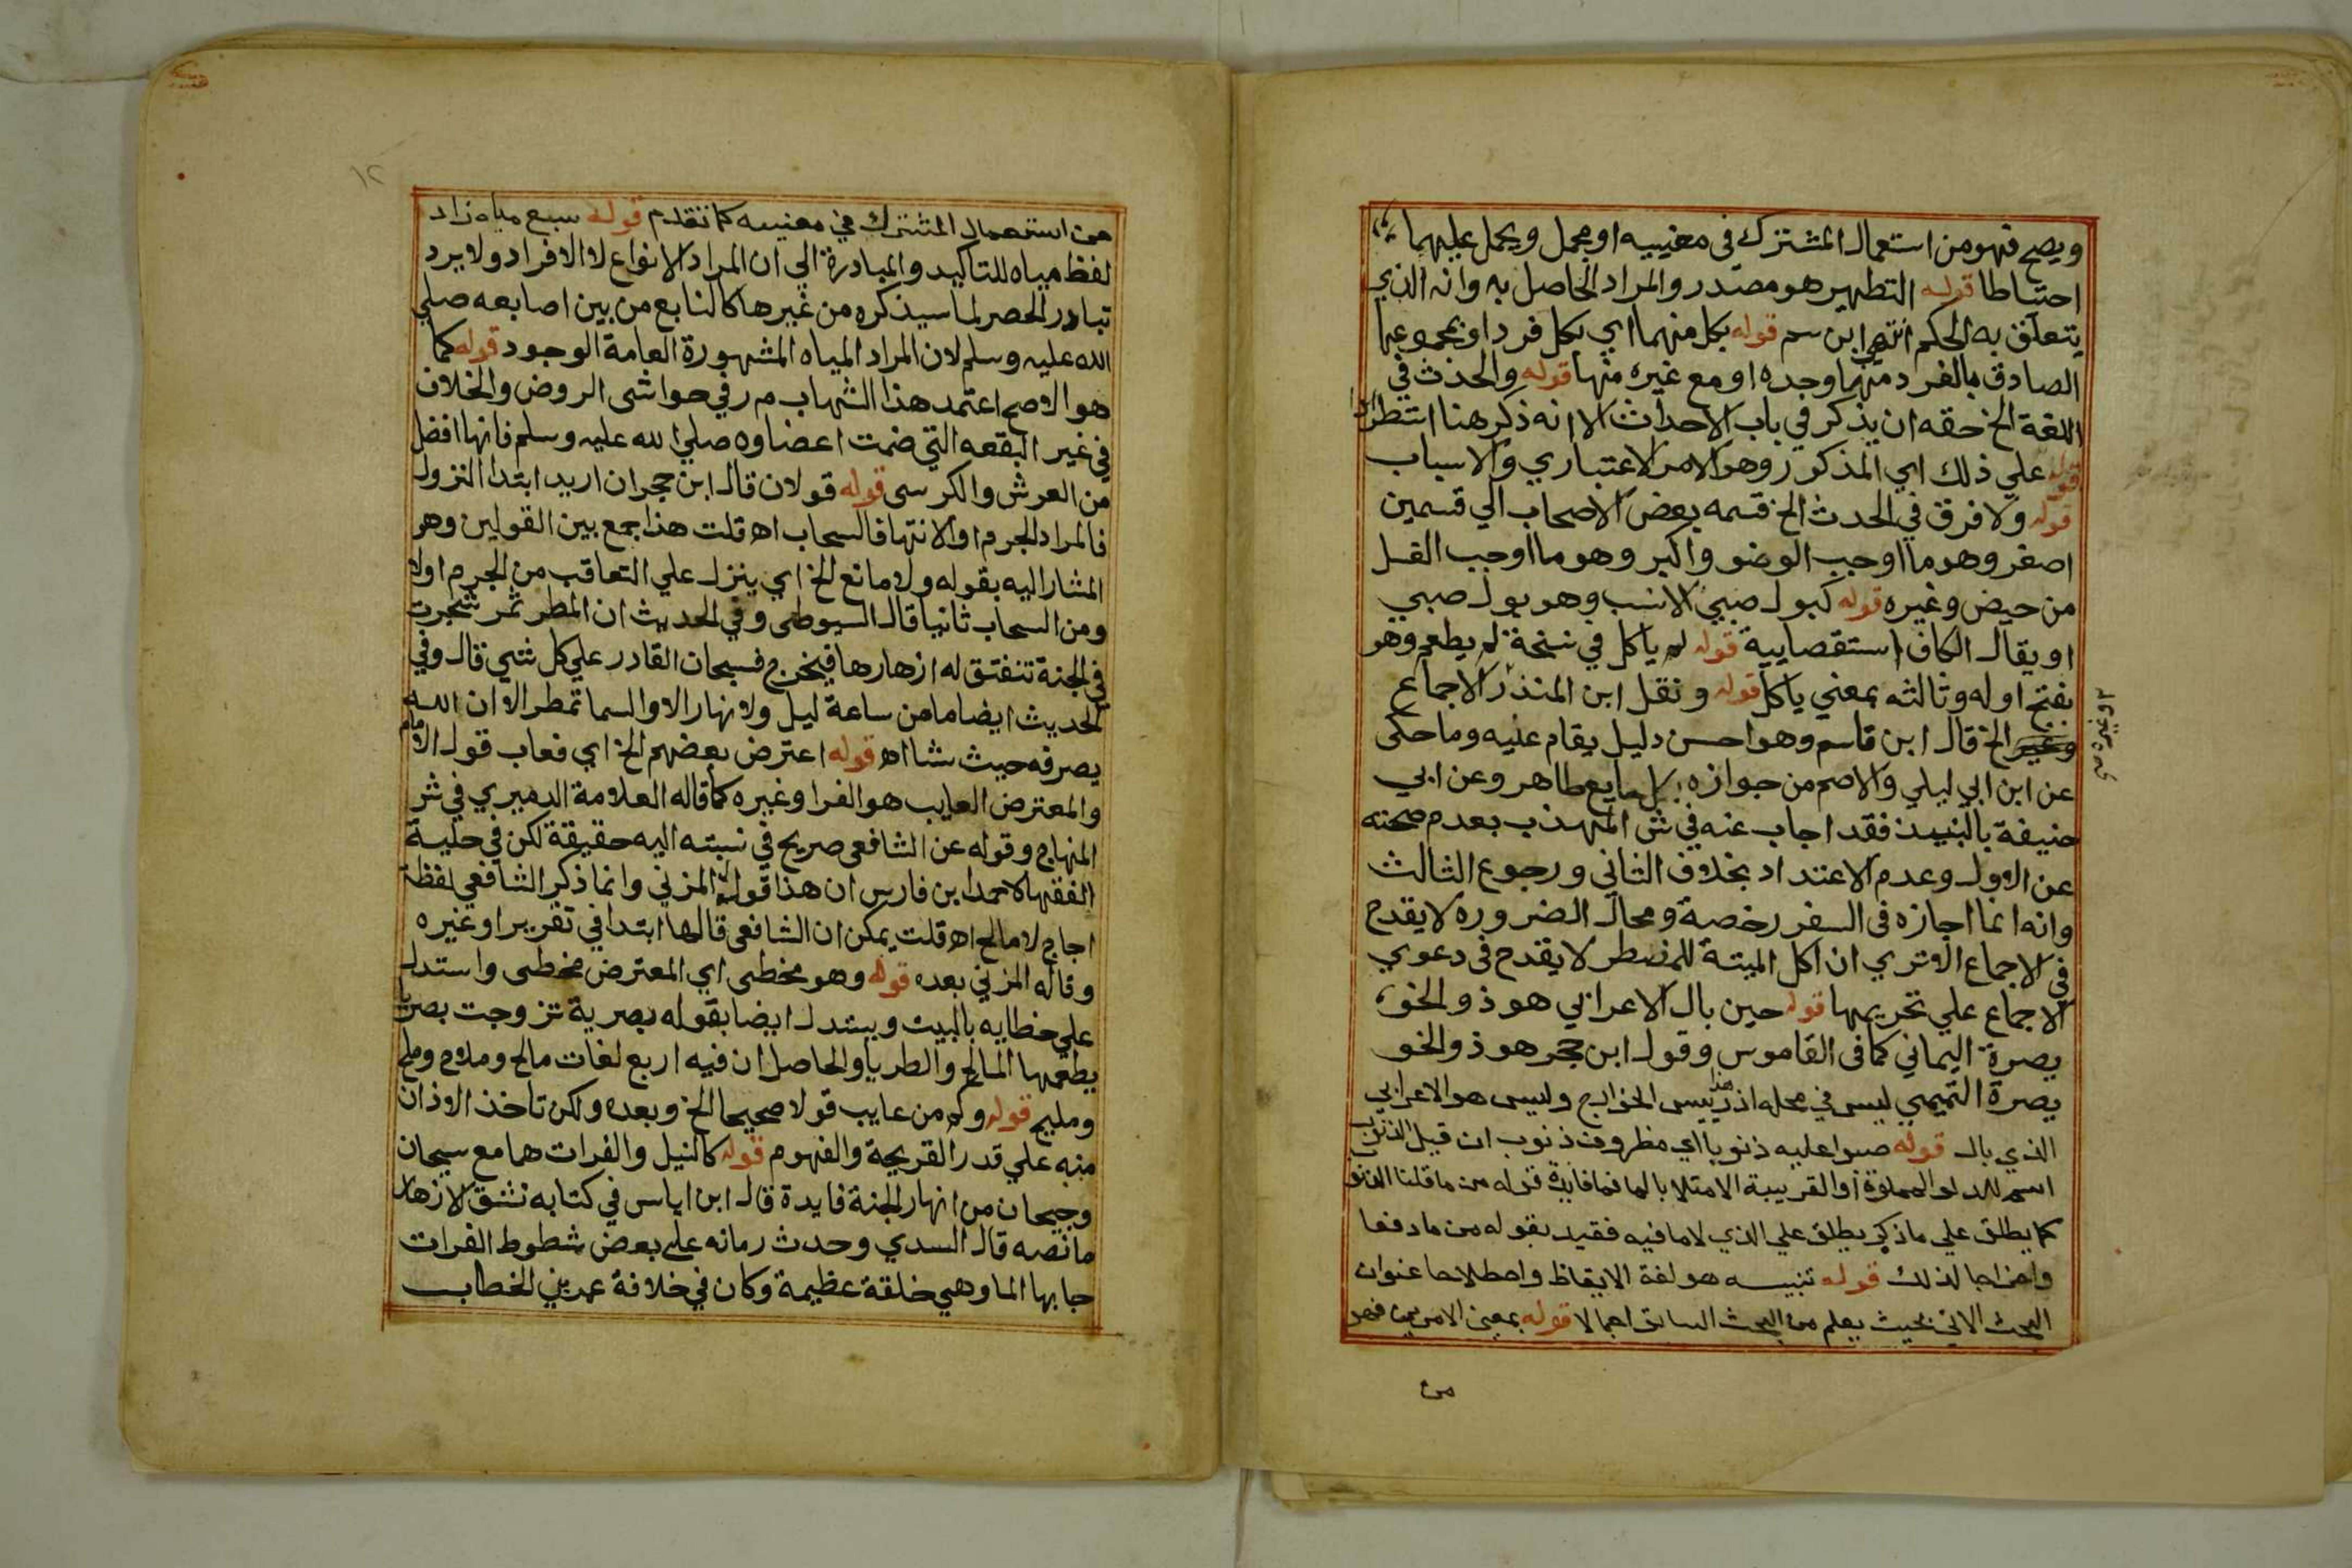 ويصح فهو من استعمال المشترك في معنييه او مجمل ويحمل عليهما
احتياطا قوله التطهير هو مصدر والمراد الحاصل به وانه الذي
يتعلق به الحكم انتهى ابن سم قوله بكل منهما اي بكل فرد او بمجموعها
الصادق بالفرد منهما وحده او مع غيره منها قوله والحدث في
اللغة الخ حقه ان يذكر في باب الاحداث الا انه ذكر هنا استطرادا
قوله على ذلك اي المذكور وهو الامر الاعتباري والاسباب
قوله ولا فرق في الحدث الخ قسمه بعض الاصحاب الي قسمين
اصغر وهو ما اوجب الوضو واكبر وهو ما اوجب الغسل
من حيض وغيره قوله كبول صبي الانسب وهو بول صبي
او يقال الكاف استقصايية قوله لم ياكل في نسخة لم يطعم وهو
بفتح اوله وثالثه بمعني ياكل قوله ونقل ابن المنذر الاجماع
وغيره الخ قال ابن قاسم وهو احسن دليل يقام عليه وما حكى
عن ابن ابي ليلي والاصم من جوازه بكل مايع طاهر وعن ابي
حنيفة بالنبيذ فقد اجاب عنه في ش المهذب بعدم صحته
عن الاول وعدم الاعتداد بخلاف الثاني ورجوع الثالث
وانه انما اجازه في السفر رخصة ومحال الضروره لا يقدح
في الاجماع الا تري ان اكل الميتة للمضطر لا يقدح في دعوي
الاجماع علي تحريمها قوله حين بال الاعرابي هو ذو الخو
يصرة اليماني كما في القاموس وقول ابن حجر هو ذو الخو
يصرة التميمي ليس في محله اذ هذا رييس الخوارج وليس هو الاعرابي
الذي بال قوله صبوا عليه ذنوبا اي مظروف ذنوب ان قيل الذنوب
اسم للدلو المملوة او القريبة الامتلا بالما فما فايدة قوله من ما قلنا الذنوب
كما يطلق علي ما ذكر يطلق علي الذي لا ما فيه فقيد بقوله من ما دفعا
واخراجا لذلك قوله تنبيه هو لغة الايقاظ واصطلاحا عنوان
البحث الاتي بحيث يعلم من البحث السابق اجمالا قوله بمعنى الامرين فهو
من
١٢
من استعمال المشترك في معنييه كما تقدم قوله سبع مياه زاد
لفظ مياه للتاكيد والمبادرة الي ان المراد الانواع لا الافراد ولا يرد
تبادر الحصر لما سيذكره من غيرها كالنابع من بين اصابعه صلي
الله عليه وسلم لان المراد المياه المشهورة العامة الوجود قوله كما
هو الاصح اعتمد هذا الشهاب م ر في حواشي الروض والخلاف
في غير البقعه التي ضمت اعضاوه صلي الله عليه وسلم فانها افضل
من العرش والكرسي قوله قولان قال ابن حجر ان اريد ابتدا النزول
فالمراد الجرم او الانتها فالسحاب اه قلت هذا جمع بين القولين وهو
المشار اليه بقوله ولا مانع الخ اي ينزل علي التعاقب من الجرم اولا
ومن السحاب ثانيا قال السيوطي وفي الحديث ان المطر ثمر شجرت
في الجنة تنفتق له ازهارها فيخرج فسبحان القادر علي كل شي قال وفي
الحديث ايضا ما من ساعة ليل ولا نهار الا والسما تمطر الا ان الله
يصرفه حيث شا اه قوله اعترض بعضهم الخ اي فعاب قول الامام
والمعترض العايب هو الفرا وغيره كما قاله العلامة الدميري في شر
المنهاج وقوله عن الشافعي صريح في نسبته اليه حقيقة لكن في حلية
الفقها لاحمد ابن فارس ان هذا قول المزني وانما ذكر الشافعي لفظة
اجاج لا مالح اه قلت يمكن ان الشافعي قالها ابتدا في تقرير او غيره
وقاله المزني بعده قوله وهو مخطى اي المعترض مخطى واستدل
علي خطايه بالبيت ويستدل ايضا بقوله بصرية تزوجت بصريا
يطعمها المالح والطريا والحاصل ان فيه اربع لغات مالح وملاح وملح
ومليح قوله وكم من عايب قولا صحيحا الخ وبعده ولكن تاخذ الاذان
منه علي قدر القريحة والفهوم قوله كالنيل والفرات هما مع سيحان
وجيحان من انهار الجنة فايدة قال ابن اياس في كتابه نشق الازهار
ما نصه قال السدي وحدث رمانه علي بعض شطوط الفرات
جا بها الما وهي خلقة عظيمة وكان في خلافة عمر بن الخطاب